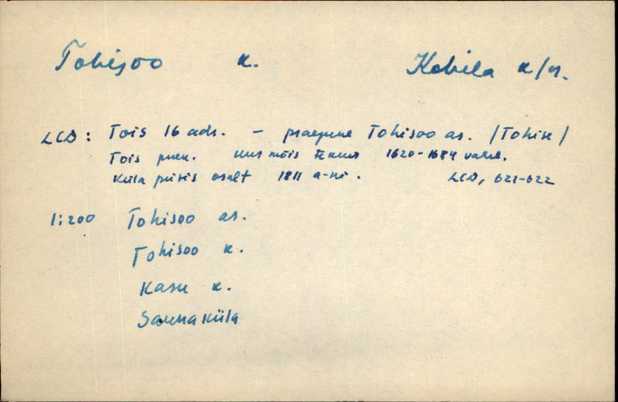 Tohisoo k. Kohila k/n.
LCD: Tois 16 adr. – praegune Tohisoo as. /Tohise/
Tois pun. uus mõis 1620-1684 vahel.
Küla püsis osalt 1811 a-ni. LCD, 621-622
1:200 Tohisoo as.
Tohisoo k.
Kasu k.
Saunaküla